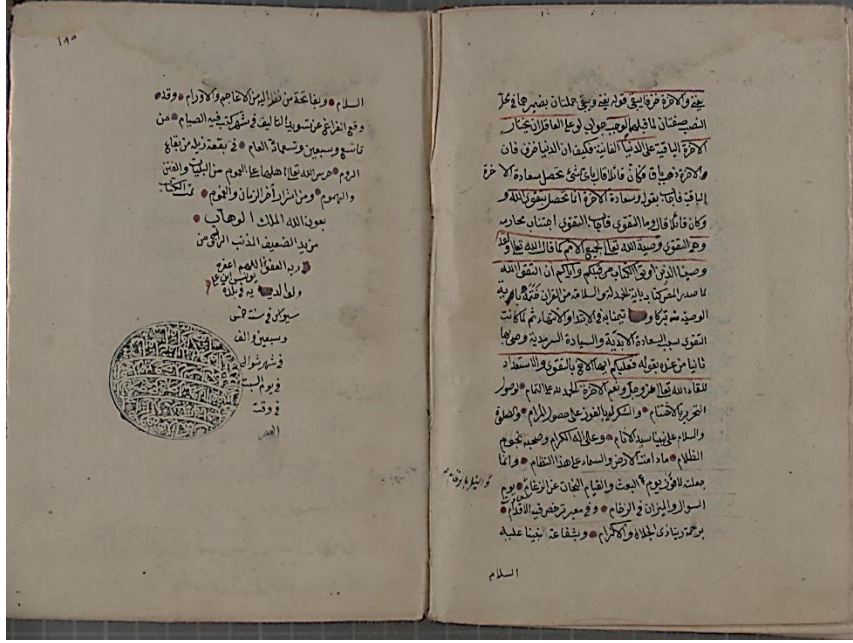 يفنى والاخرة خرف يبقى قوله يفنى ويبقى جملتان بضميرها في محل
النصب صفتان لما قبلهم الوجب جواب لو على العاقل ان يختار
الاخرة الباقية على الدنيا الفانية فكيف ان الدنيا خرف فان
والاخرة ذهب باق فكان قائلا قال باى شئ يحصل سعادة الاخرة
الباقية فاجاب بقوله وسعادة الاخرة انما تحصل بتقوى الله و
وكان قائلا قال وما التقوى فاجاب التقوى اجتناب محارمه
وهو التقوى وصية الله تعالى لجميع الامم كما قال الله تعالى ولقد
وصينا الذين اوتوا الكتاب من قبلكم واياكم ان اتقوا الله
لما صدر المص كتابه باية الحمدلة والسلامة من القران ختمه باية
الوصية منه تبركا وتيمنا به في الابتداء والانتهاء ثم لما كانت
التقوى سبب السعادة الابدية والسيادة السرمدية وصى بها
ثانيا من عنده بقوله فعليكم ايها الاخ بالتقوى والاستعداد
للقاء الله تعالى عز وجل ونعم الاخرة الحمد لله على التمام لوصول
التحرير الاختتام والشكر له بالفوز على حصول المرام والصلوة
والسلام على نبينا سيد الانام وعلى اله الكرام وصحبه نجوم
الظلام ما دامت الارض والسماء على هذا النظام وانما
جعلته لافوز يوم البعث والقيام النجات عن الزغام يوم
السوال والميزان في الرغام وفي معبر ترخص فيه الاقدام
برحمة ربنا ذى الجلال والاكرام وبشفاعة نبينا عليه
السلام
١٨٥
السلام وبفاتحة من نظر اليه من الاعاجم والاورام وقد
وقع الفراغ عن تسويد التاليف في شهر كتب فيه الصيام من
تاسع وسبعين وتسعمائة العام في بقعة زيله من بقاع
الروم حرس الله تعالى اهلها عن الهموم من البليات والفتن
والهموم ومن اشرار اخر الزمان والغموم تمت الكتاب
بعون الله الملك الوهاب
من يد الضعيف المذنب الراجى من
ربه العفو اللهم اغفره
يونس ابن على
ولوالديه في بلدة
سيواس في سنة خمس
وسبعين والف
في شهر شوال
في يوم السبت
في وقت
العصر